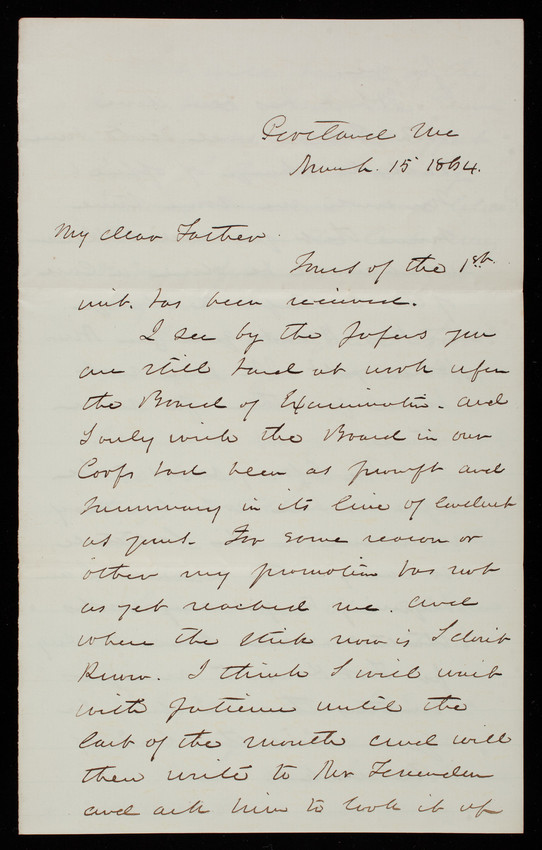 Portland Me
March. 15 1864.
My dear Father
Yours of the 1st.
inst. has been received.
I see by the papers you
are still hard at work upon
the Board of Examination. and
I only wish the Board in our
Corps had been as prompt and
summary in its line of conduct
as yours. For some reason or
other my promotion has not
as yet reached me. and
where the stick now is I don't
know. I think I will wait
with patience until the
last of the month and will
then write to Mr Fessenden
and ask him to look it up